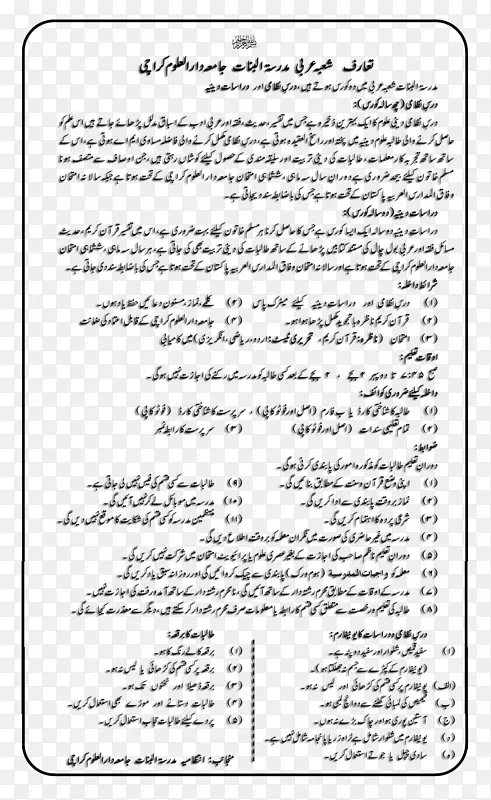 تعارف شعبہ عربی مدرسۃ البنات جامعہ دارالعلوم کراچی
مدرسۃ البنات شعبہ عربی میں دو کورس ہوتے ہیں، درسِ نظامی اور دراساتِ دینیہ
درسِ نظامی (چھ سالہ کورس):
درسِ نظامی دینی علوم کا ایک بہترین ذخیرہ ہے جس میں تفسیر، حدیث، فقہ اور عربی ادب کے اسباق مدلل پڑھائے جاتے ہیں اس علم کو
حاصل کرنے والی طالبہ علومِ دینیہ میں پختہ اور راسخ العقیدہ ہوتی ہے، درسِ نظامی مکمل کرنے والی فاضلہ مساوی ایم اے ہوتی ہے، اس کے
ساتھ ساتھ تجربہ کار معلمات، طالبات کی دینی تربیت اور سلیقہ مندی کے حصول کیلئے کوشاں رہتی ہیں، جن اوصاف سے متصف ہونا
مسلم خاتون کیلئے بیحد ضروری ہے دورانِ سال سہ ماہی، ششماہی امتحان جامعہ دارالعلوم کراچی کے تحت ہوتا ہے جبکہ سالانہ امتحان
وفاق المدارس العربیہ پاکستان کے تحت ہوتا ہے جس کی باضابطہ سند دی جاتی ہے۔
دراساتِ دینیہ (دو سالہ کورس):
دراساتِ دینیہ دو سالہ ایک ایسا کورس ہے جس کا حاصل کرنا ہر مسلم خاتون کیلئے بہت ضروری ہے، اس میں تفسیر قرآن کریم، حدیث
مسائل فقہ اور عربی بول چال کی مستند کتابیں پڑھانے کے ساتھ طالبات کی دینی تربیت بھی کی جاتی ہے، ہر سال سہ ماہی، ششماہی امتحان
جامعہ دارالعلوم کراچی کے تحت ہوتا ہے اور سالانہ امتحان وفاق المدارس العربیہ پاکستان کے تحت ہوتا ہے جس کی باضابطہ سند دی جاتی ہے۔
شرائطِ داخلہ:
(۱) درسِ نظامی اور دراساتِ دینیہ کیلئے میٹرک پاس (۲) کلمے، نماز، مسنون دعائیں حفظ یاد ہوں۔
(۲) قرآن کریم ناظرہ با تجوید مکمل پڑھا ہوا ہو۔ (۴) جامعہ دارالعلوم کراچی کے قابل اعتماد کی ضمانت
(۳) امتحان (ناظرہ: قرآن کریم، تحریری ٹیسٹ: اردو، ریاضی، انگریزی) میں کامیابی
اوقاتِ تعلیم:
صبح ۷:۴۵ تا دوپہر ۲ بجے ، ۲ بجے کے بعد کسی طالبہ کو مدرسہ میں رکنے کی اجازت نہیں ہوگی۔
داخلہ کیلئے ضروری کوائف:
(۱) طالبہ کا شناختی کارڈ یا ب فارم (اصل اور فوٹو کاپی)، سرپرست کا شناختی کارڈ (فوٹو کاپی)
(۲) تمام تعلیمی سندات (اصل اور فوٹو کاپی) (۳) سرپرست کا رابطہ نمبر
ضوابط:
دورانِ تعلیم طالبات کو مذکورہ امور کی پابندی کرنی ہوگی۔
(۱) اپنی وضع قرآن و سنت کے مطابق بنائیں گی۔ (۹) طالبات سے کسی قسم کی فیس نہیں لی جاتی ہے۔
(۲) نماز بروقت پابندی سے ادا کریں گی۔ (۱۰) مدرسہ میں موبائل لے کر نہیں آئیں گی۔
(۳) شرعی پردہ کا اہتمام کریں گی۔ (۱۱) منتظمین مدرسہ کو کسی قسم کی شکایت کا موقع نہیں دیں گی۔
(۴) مدرسہ میں غیر حاضری کی صورت میں نگران معلمہ کو بروقت اطلاع دیں گی۔
(۵) دورانِ تعلیم ناظم صاحب کی اجازت کے بغیر عصری علوم یا پرائیوٹ امتحان میں شرکت نہیں کریں گی۔
(۶) معلمہ کو واجبات المدرسیۃ (ہوم ورک) پابندی سے چیک کروائیں گی اور روزانہ سبق یاد کریں گی۔
(۷) مدرسہ کے اوقات کے مطابق محرم رشتہ دار کے ساتھ آئیں گی، نامحرم رشتہ دار کے ساتھ آمدورفت کی اجازت نہیں۔
(۸) طالبہ کی تعلیم و رخصت سے متعلق کسی قسم کا رابطہ یا معلومات صرف محرم رشتہ دار کر سکتے ہیں، دیگر سے معذرت کی جائے گی۔
درسِ نظامی و دراسات کا یونیفارم:
(۱) سفید قمیص، شلوار اور سفید دوپٹہ ہے۔
(یونیفارم کے کپڑے سے جسم نہ جھلکتا ہو)۔
(الف) یونیفارم پر کسی قسم کی کڑھائی اور لیس نہ ہو۔
(ب) قمیص کی لمبائی گھٹنے سے دو انچ نیچی ہو۔
(ج) آستین پوری ہو اور چاک بڑے نہ ہوں۔
(د) یونیفارم میں شلوار شامل ہے ٹراؤزر یا پائجامہ شامل نہیں ہے۔
(ہ) سادی چپل یا جوتے استعمال کریں۔
طالبات کا برقعہ:
(۱) برقعہ کالے رنگ کا ہو۔
(۲) برقعہ پر کسی قسم کی کڑھائی یا لیس نہ ہو۔
(۳) برقعہ ڈھیلا اور ٹخنوں تک ہو۔
(۴) طالبات دستانے اور موزے بھی استعمال کریں۔
(۵) پردے کیلئے طالبات نقاب استعمال کریں۔
منجانب: انتظامیہ مدرسۃ البنات جامعہ دارالعلوم کراچی